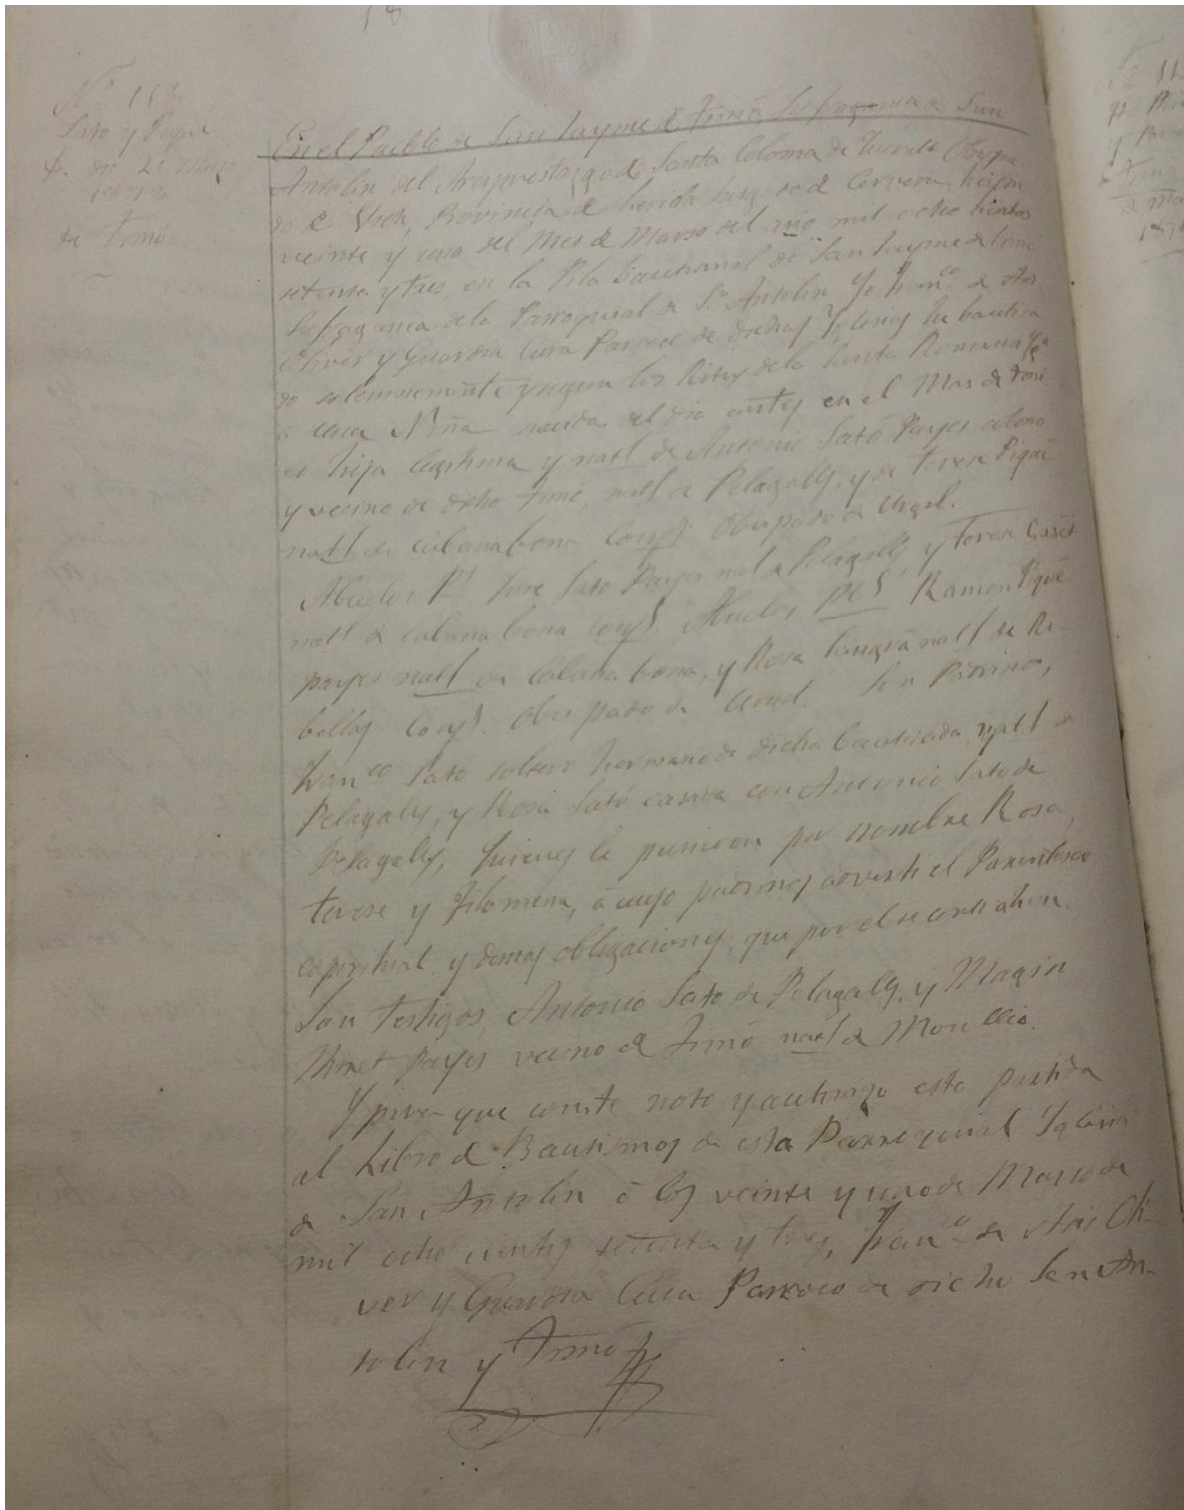 18
Nº 113
Sató y Piqué
dia 21 Marzo
de Timó
En el Pueblo de San Jayme de Timó Sufraganea de San
Antolin del Arciprestazgo de Santa Coloma de Queralt Obispa
do de Vich, Provincia de Lerida Juzgado de Cervera, hoy dia
veinte y uno del Mes de Marso del año mil ocho cientos
setenta y tres, en la Pila Bautismal de San Jayme de Timó
Sufraganea de la Parroquial de Sⁿ Antolin Yo Franᶜᵒ de Asis
Oliver y Guardia Cura Parroco de dichas Iglesias he bautiza
do solemnemente segun los Ritos de la Santa Romana Igª
a una Niña nacida el dia antes en el Mas de Timó
es hija legitima y natl de Antonio Sató Payes colono
y vecino de dicho Timó, natl de Pelagalls, y de Teresa Piqué
natl de Cabanabona Consᵗ Obispado de Urgel.
Abuelos Pˢ José Sató Payes nal de Pelagalls y Teresa
natl de Cabanabona Consᵗ Abuelos Mˢ Ramon Piqué
payes natl de Cabana bona, y Rosa natl de Ri
bellas Consᵗ. Obispado de Urgel. Son Padrinos,
Franᶜᵒ Sató soltero hermano de dicha bautizada natl de
Pelagalls, y Rosa Sató casada con Antonio Sató de
Pelagalls, quienes le pusieron por nombre Rosa,
Teresa y Filomena, á cuyos padrinos advertí el Parentesco
espiritual y demas obligaciones que por el se contrahen.
Son Testigos, Antonio Sató de Pelagalls, y Magin
Minet payes vecino de Timó natl de Mon
Y para que conste noto y autorizo esta partida
al Libro de Bautismos de esta Parroquial Iglesia
de San Antolin á los veinte y uno de Marso de
mil ocho cientos setenta y tres, Franᶜᵒ de Asis Oli-
ver y Guardia Cura Parroco de dicho San An-
tolin y Timó